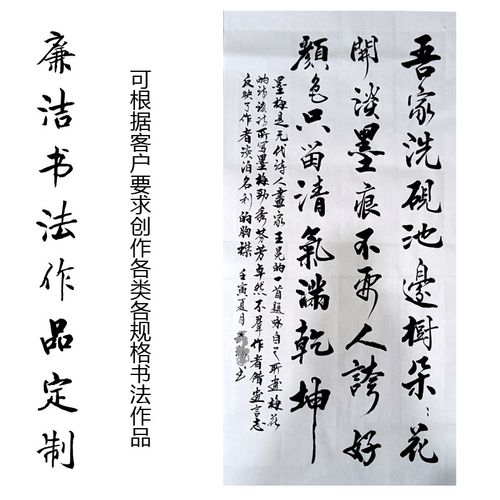 廉洁书法作品定制
可根据客户要求创作各类各规格书法作品
吾家洗硯池邊樹朵々花
開淡墨痕不要人誇好
顏色只留清氣滿乾坤
墨梅是元代诗人畫家王冕的一首題咏自己所畫梅花
的诗该诗所写墨梅劲秀芬芳卓然不羣作者借畫言志
反映了作者淡泊名利的胸襟 壬寅夏月 书